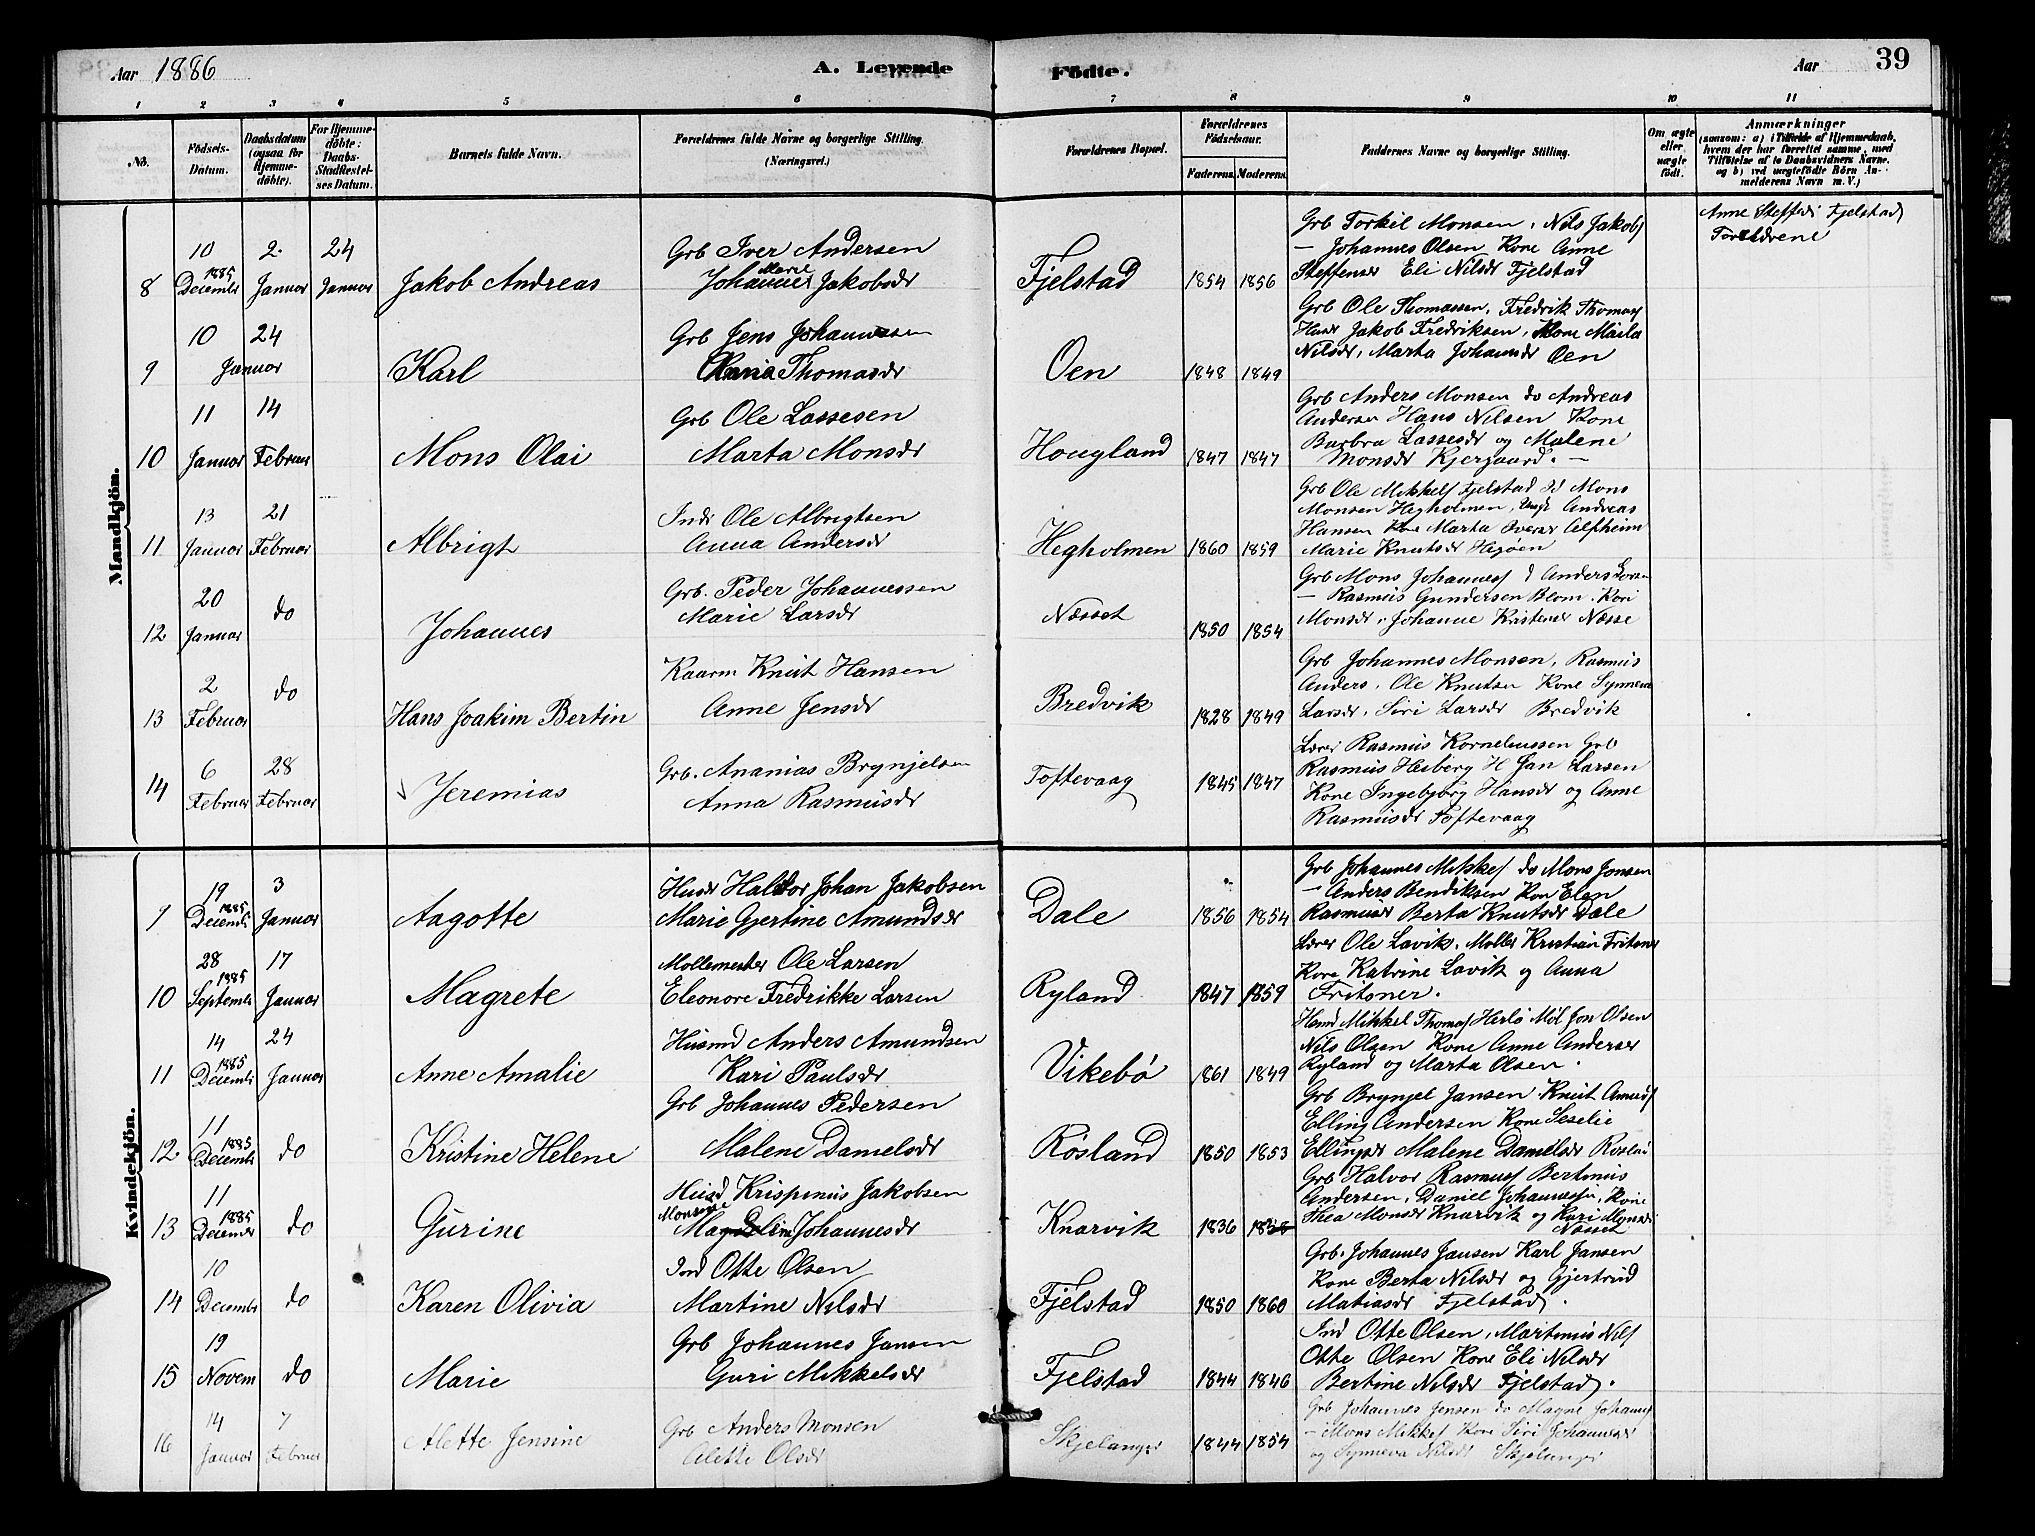 Aar 1886 A. Levende Födte. Aar 39
1 2 3 4 5 6 7 8 9 10 11
No. Födsels-Datum. Daabsdatum (ogsaa for Hjemme-döbte). For Hjemme-döbte: Daabs-Stadfæstel-ses Datum. Barnets fulde Navn. Forældrenes fulde Navne og borgerlige Stilling. (Næringsvei.) Forældrenes Bopæl. Forældrenes Födselsaar. Faderens. Moderens. Faddernes Navne og borgerlige Stilling. Om ægte eller uægte födt. Anmærkninger (saasom: a) i Tilfælde af Hjemmedaab, hvem der har forrettet samme, med Tilföielse af to Daabsvidners Navne, og b) ved uægtefödte Börn An-melderens Navn m. V.)
Mandkjön.
Grb Torkil Monsen, Nils Jakobs
Anne Steffens Fjelstad
10 2. 24 Grb Iver Andersen
— Johannes Olsen Kone Anne
Forældrene
8 1885 December Januar Januar Jakob Andreas Johanne Marie Jakobsdr Fjelstad 1854 1856
Steffensdr Eli Nilsdr Fjelstad
10 24 Grb Jens Johannessen
Grb Ole Thomassen, Fredrik Thomas
Husm Jakob Fredriksen, Kone Marta
9 Januar Karl Thomasdr Oen 1848 1849
Nilsdr, Marta Johansdr Oen
11 14 Grb Ole Lassesen
Grb Anders Monsen do Andreas
Andersen Hans Nilsen Kone
10 Januar Februar Mons Olai Marta Monsdr Hougland 1847 1847
Barbra Lassesdr og Malene
Monsdr Kjergaard. —
13 21 Inds Ole Albrigtsen
Grb Ole Mikkels Fjelstad d Mons
Monsen Hegholmen, Andreas
11 Januar Februar Albrigt Anna Andersdr Hegholmen 1860 1859
Hansen Kone Marta Iversdr Alfheim
Marie Knutsdr Hegøen
20 do Grb. Peder Johannessen
Grb Mons Johannes d Anders
— Rasmus Gundersen Blom. Kari
12 Januar Johannes Marie Larsdr Næsset 1850 1854
Monsdr, Johanne Kristensdr Næsse
2 do Kaarm Knut Hansen
Grb Johannes Monsen, Rasmus
Anders, Ole Knutsen Kone Synneva
13 Februar Hans Joakim Bertin Anne Jensdr Bredvik 1828 1849
Larsdr, Siri Larsdr Bredvik
6 28 Grb. Ananias Brynjelsen
Lærer Rasmus Korneliussen Grb
Rasmus Hesberg H Jan Larsen
14 Februar Februar Jeremias Anna Rasmusdr Toftevaag 1845 1847
Kone Ingebjørg Hansdr og Anne
Rasmusdr Toftevaag
Kvindekjön.
19 3 Husm Haldor Johan Jakobsen
Grb Johannes Mikkels do Mons Jonsen
— Anders Bendiksen Kon Elen
9 1885 Decemb Januar Aagotte Marie Gjertine Amundsdr Dale 1856 1854
Rasmusdr Berta Knutsdr Dale
28 17 Møllemester Ole Larsen
Lærer Ole Lavik, Møller Kristian Fritsner
Kone Katrine Lavik og Anna
10 1885 September Januar Magrete Eleonore Fredrikke Larsen Ryland 1847 1859
Fritsner.
14 24 Husmd Anders Amundsen
Husmd Mikkel Thomas Herlö Møl Jon Olsen
Nils Olsen Kone Anne Andersdr
11 1885 Decemb Januar Anne Amalie Kari Paulsdr Vikebø 1861 1849
Ryland og Marta Olsen.
11 do Grb Johannes Pedersen
Grb Brynjel Jansen Knut Amus
Elling Andersen Kone Seselie
12 1885 Decemb Kristine Helene Malene Danielsdr Røsland 1850 1853
Ellingsdr Malene Danielsdr Røsland
11 do Husd Krispinus Jakobsen
Grb Halvor Rasmus Bertinius
Andersen, Daniel Johannessen, Kone
13 1885 December Gurine Monsine Magdeline Johannesdr Knarvik 1836 1838
Thea Monsdr Knarvik og Kari Monsdr
Næsset
10 do Ind Otte Olsen
Grb. Johannes Jansen Karl Jansen
Kone Berta Nilsdr og Gjertrud
14 Decemb Karen Olivia Martine Nilsdr Fjelstad 1850 1860
Matiasdr Fjelstad.
19 do Grb Johannes Jansen
Ind Otte Olsen, Martinus Nils
Otte Olsen Kone Eli Nilsdr
15 Novem Marie Guri Mikkelsdr Fjelstad 1844 1846
Bertine Nilsdr Fjelstad.
14 7 Grb Anders Monsen
Grb Johannes Jensen do Magne Johannes
— Mons Mikkels Kone Siri Johannesdr
16 Januar Februar Alette Jensine Alette Olsdr Skjelanger 1844 1854
og Synneva Nilsdr Skjelanger